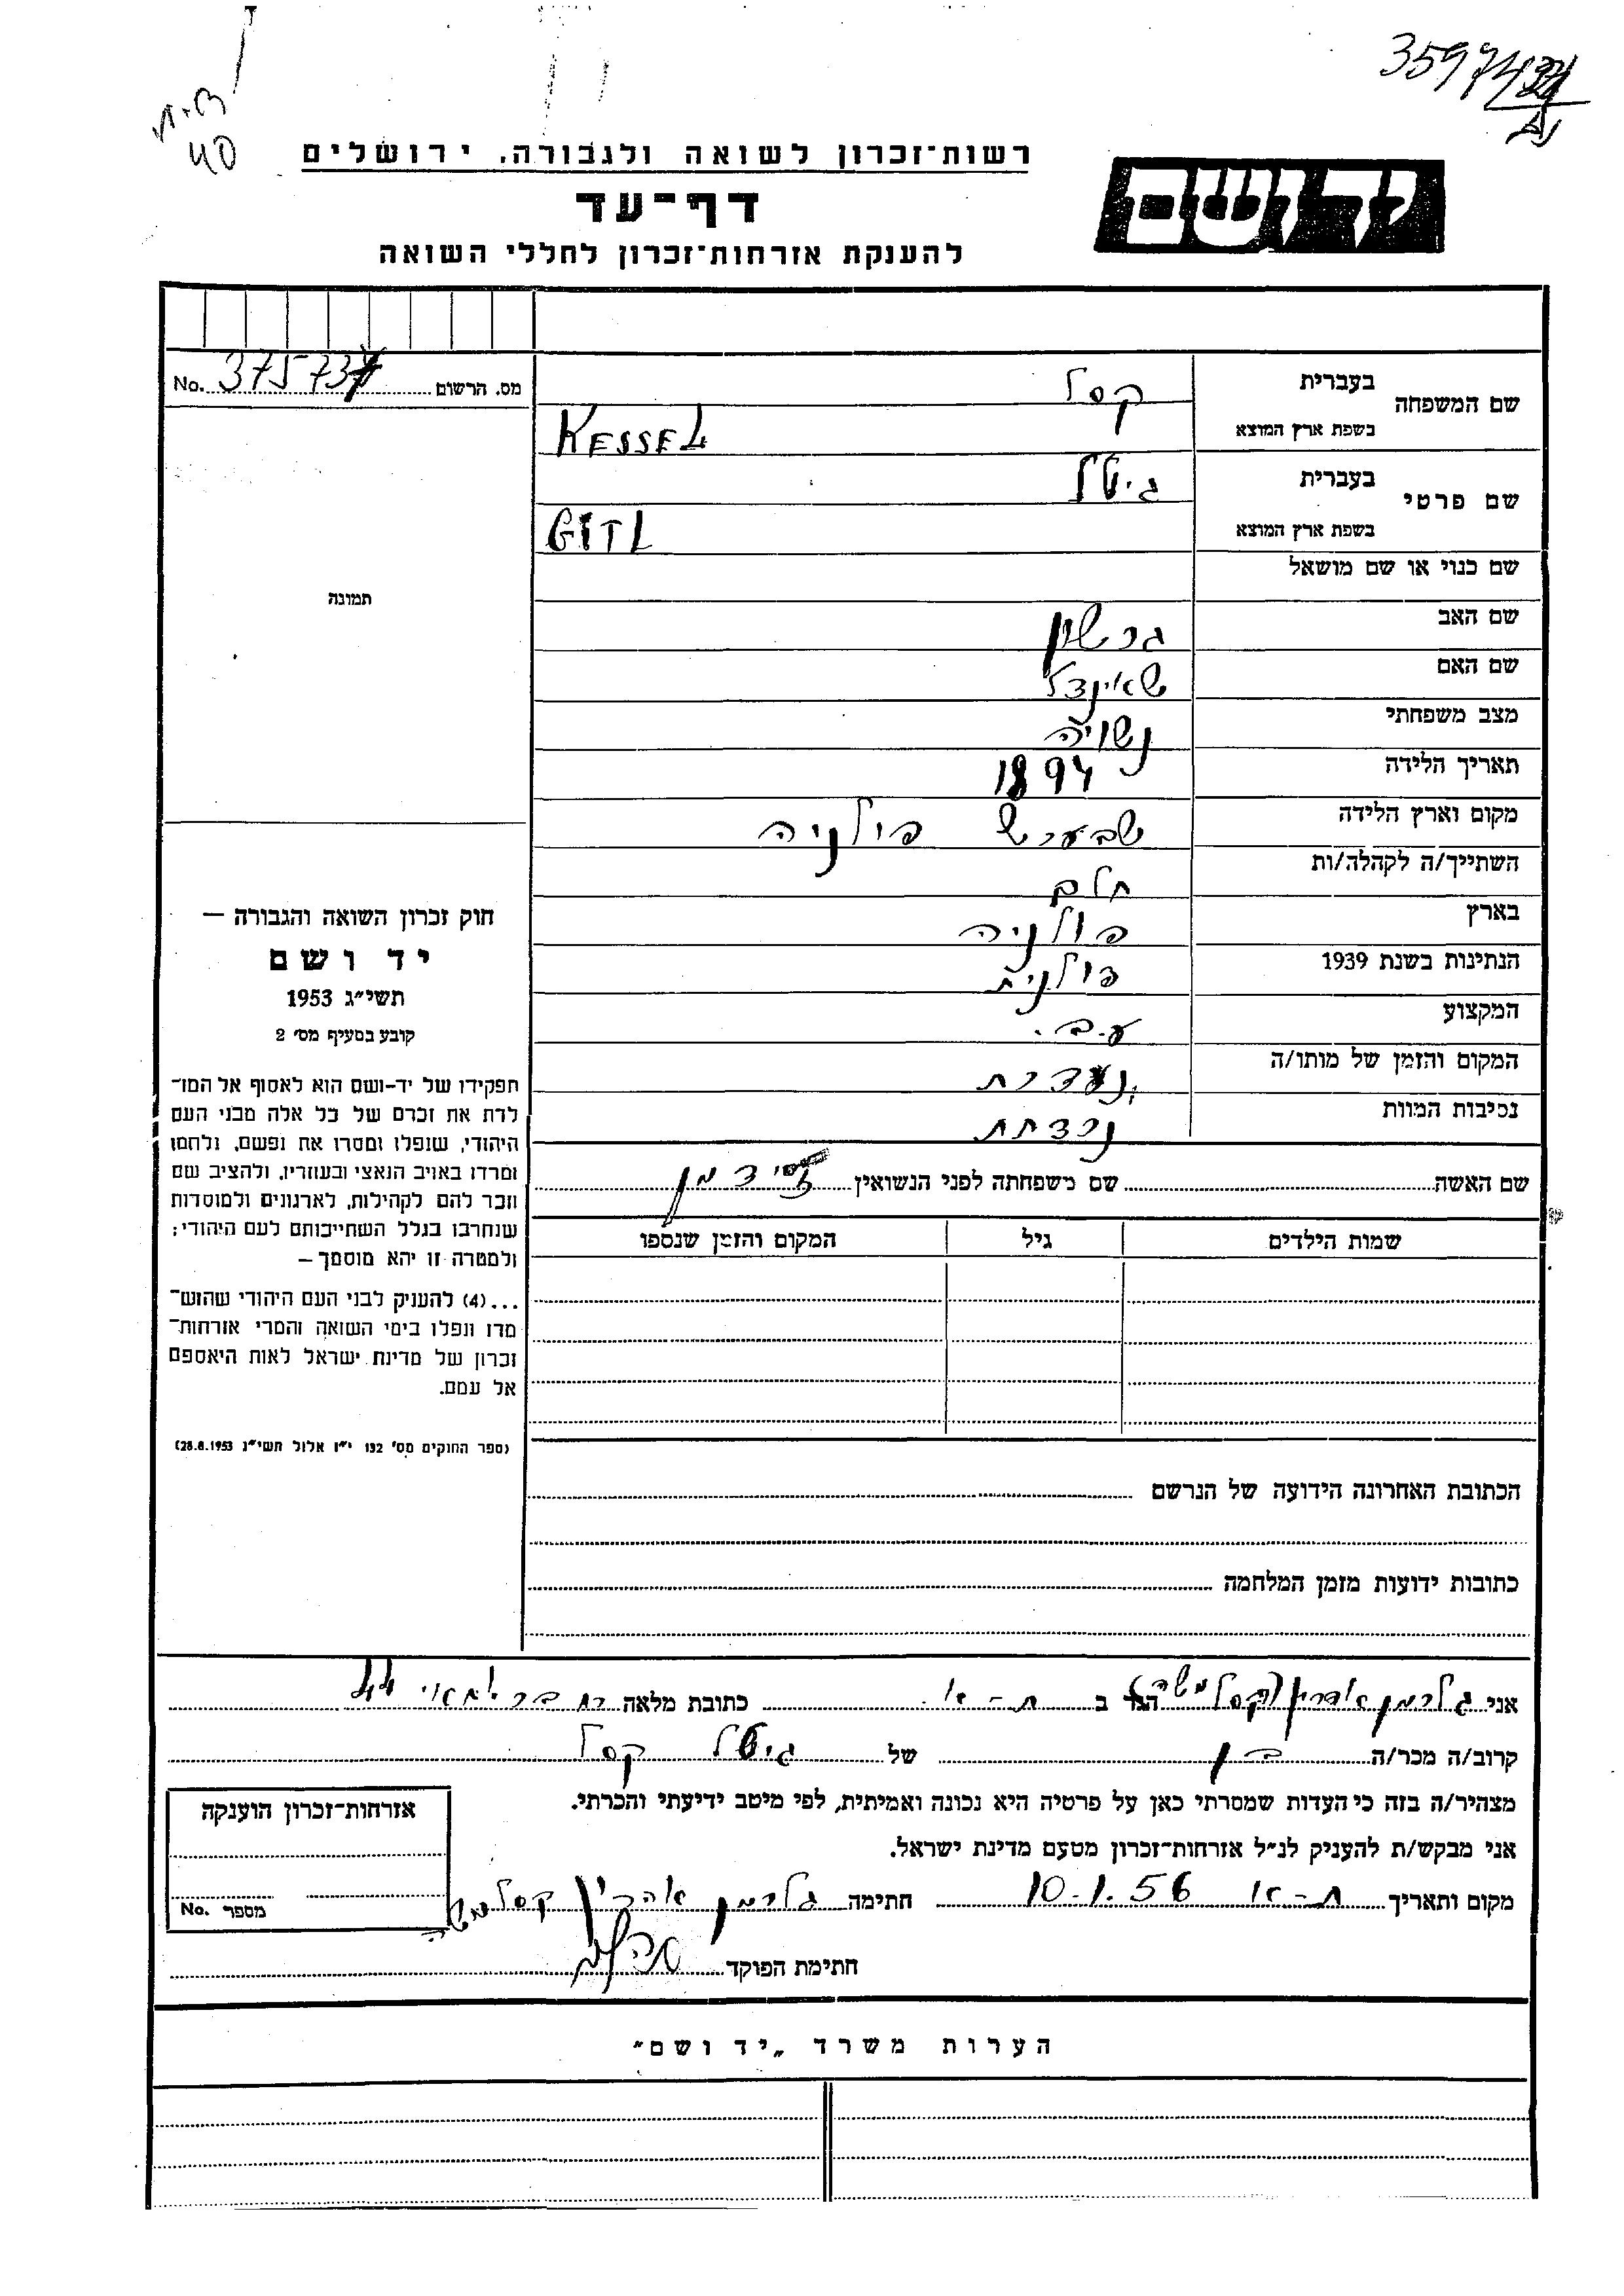 רשות־זכרון לשואה ולגבורה, ירושלים
יד ושם
דף־עד
להענקת אזרחות־זכרון לחללי השואה
מס. הרשום No. 375737
שם המשפחה
בעברית
קסל
בשפת ארץ המוצא
KESSEL
שם פרטי
בעברית
גיטל
בשפת ארץ המוצא
GITL
שם כנוי או שם מושאל
שם האב גרשון
שם האם שאינדל
מצב משפחתי נשויה
תאריך הלידה 1894
מקום וארץ הלידה שבערש פולניה
השתייך/ה לקהלה/ות חלם
בארץ פולניה
הנתינות בשנת 1939 פולנית
המקצוע ע.ב.
המקום והזמן של מותו/ה נעדרת
נסיבות המוות נרצחת
שם האשה שם משפחתה לפני הנשואין זידמן
שמות הילדים גיל המקום והזמן שנספו
הכתובת האחרונה הידועה של הנרשם
כתובות ידועות מזמן המלחמה
תמונה
חוק זכרון השואה והגבורה —
יד ושם
תשי״ג 1953
קובע בסעיף מס׳ 2
תפקידו של יד-ושם הוא לאסוף אל המו־
לדת את זכרם של כל אלה מבני העם
היהודי, שנפלו ומסרו את נפשם, נלחמו
ומרדו באויב הנאצי ובעוזריו, ולהציב שם
וזכר להם לקהילות, לארגונים ולמוסדות
שנחרבו בגלל השתייכותם לעם היהודי;
ולמטרה זו יהא מוסמך —
...(4) להעניק לבני העם היהודי שהוש־
מדו ונפלו בימי השואה והמרי אזרחות־
זכרון של מדינת ישראל לאות היאספם
אל עמם.
(ספר החוקים מס׳ 132 י״ז אלול תשי״ג 28.8.1953)
אני גלרמן אהרון (קסל משה) הגר ב ת-א. כתובת מלאה 44
קרוב/ה מכר/ה בן של גיטל קסל
מצהיר/ה בזה כי העדות שמסרתי כאן על פרטיה היא נכונה ואמיתית, לפי מיטב ידיעתי והכרתי.
אני מבקש/ת להעניק לנ״ל אזרחות־זכרון מטעם מדינת ישראל.
מקום ותאריך ת-א 10.1.56 חתימה גלרמן אהרון קסל משה
חתימת הפוקד
אזרחות־זכרון הוענקה
מספר No.
הערות משרד „יד ושם״